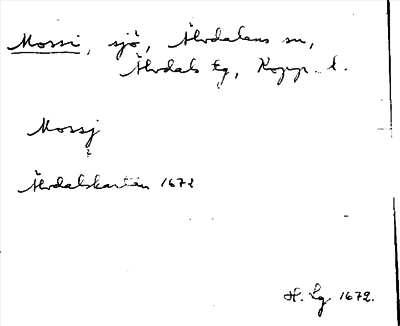 Mossi, sjö, Älvdalens sn,
Älvdals tg, Kopp. l.
Mossj
?
Älvdalskartan 1672
H. Lg 1672.